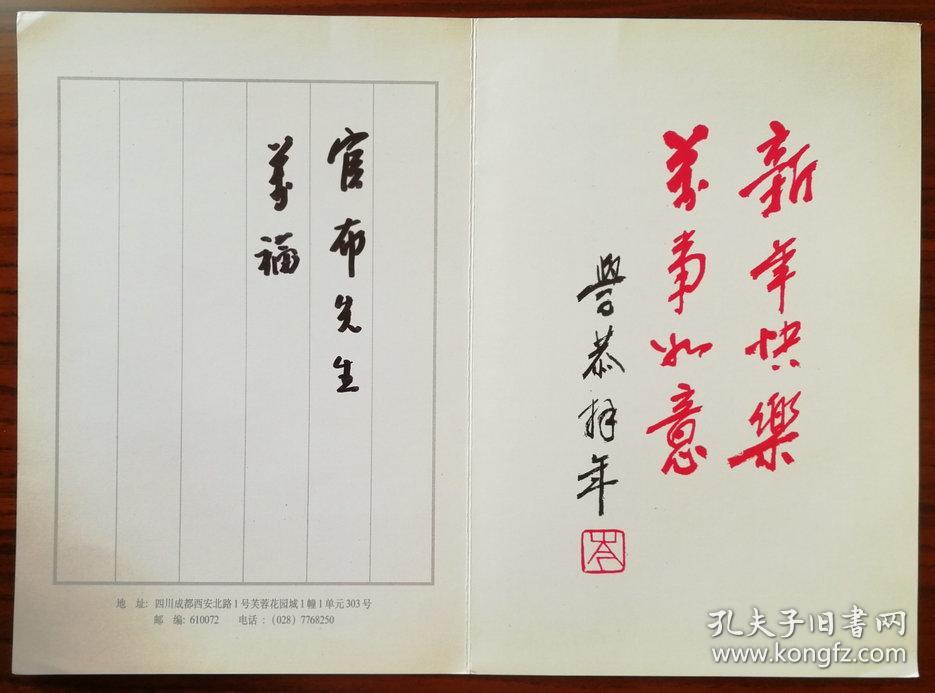 新年快樂
萬事如意
學恭拜年
岑
官布先生
萬福
地 址: 四川成都西安北路1号芙蓉花园城1幢1单元303号
邮 编: 610072 电话 : (028) 7768250
孔夫子旧书网
www.kongfz.com